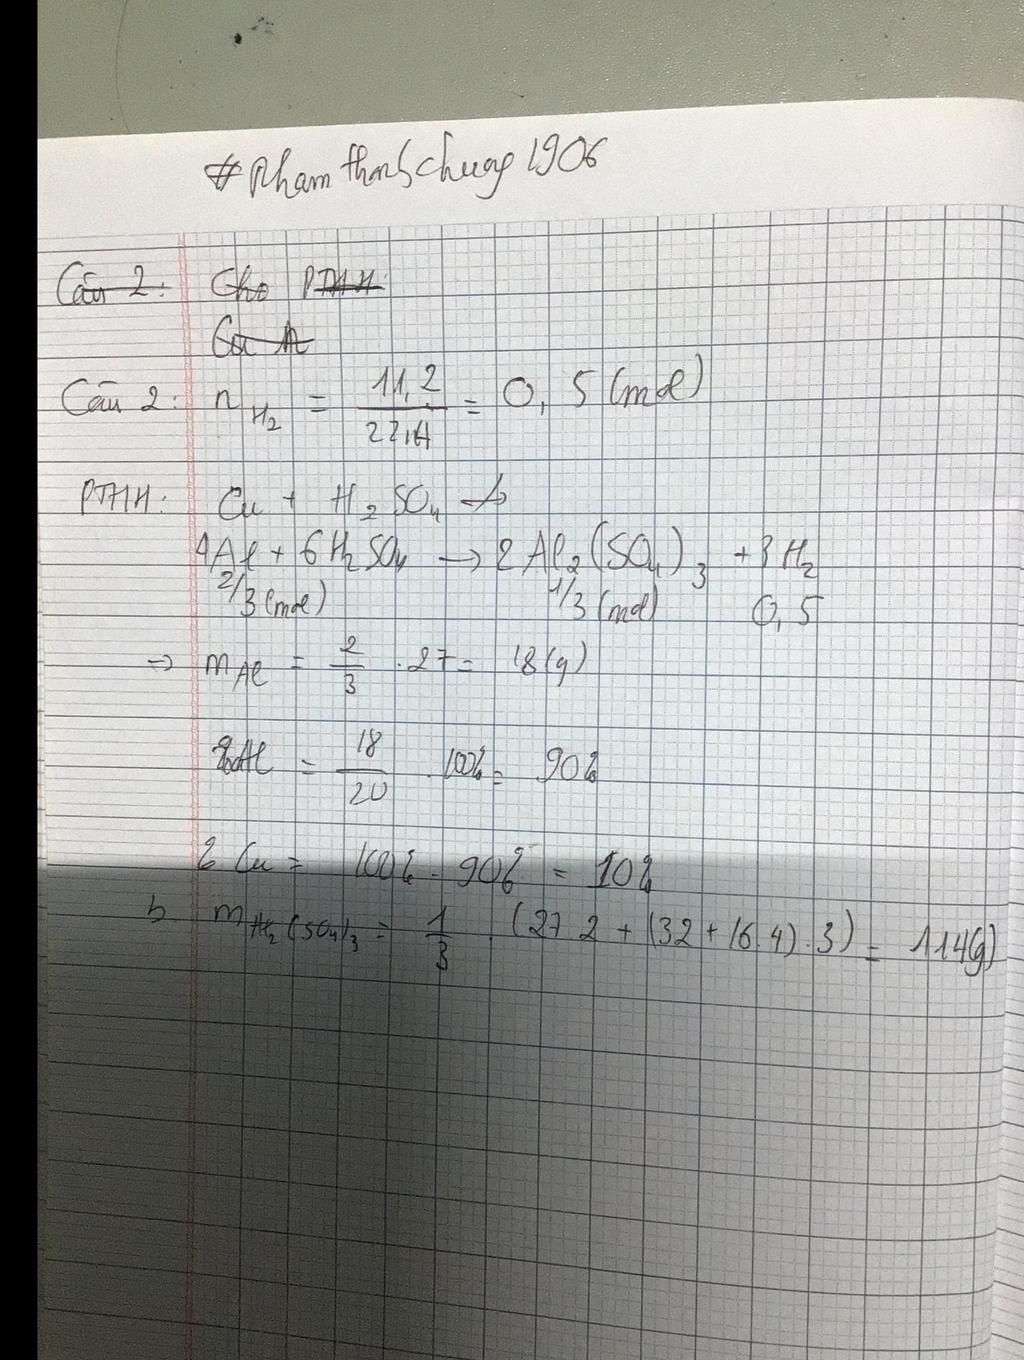 #Phamthanhchung1906
Câu 2: Cho PTHH:
Cu A
Câu 2: n H₂ = 11,2 / 22,4 = 0,5 (mol)
PTHH: Cu + H₂SO₄ ↛
4Al + 6H₂SO₄ → 2Al₂(SO₄)₃ + 3H₂
2/3 (mol) 1/3 (mol) 0,5
=> mAl = 2/3 . 27 = 18(g)
%Al = 18/20 . 100% = 90%
% Cu = 100% - 90% = 10%
b. mAl₂(SO₄)₃ = 1/3 . (27.2 + (32 + 16.4).3) = 114(g)